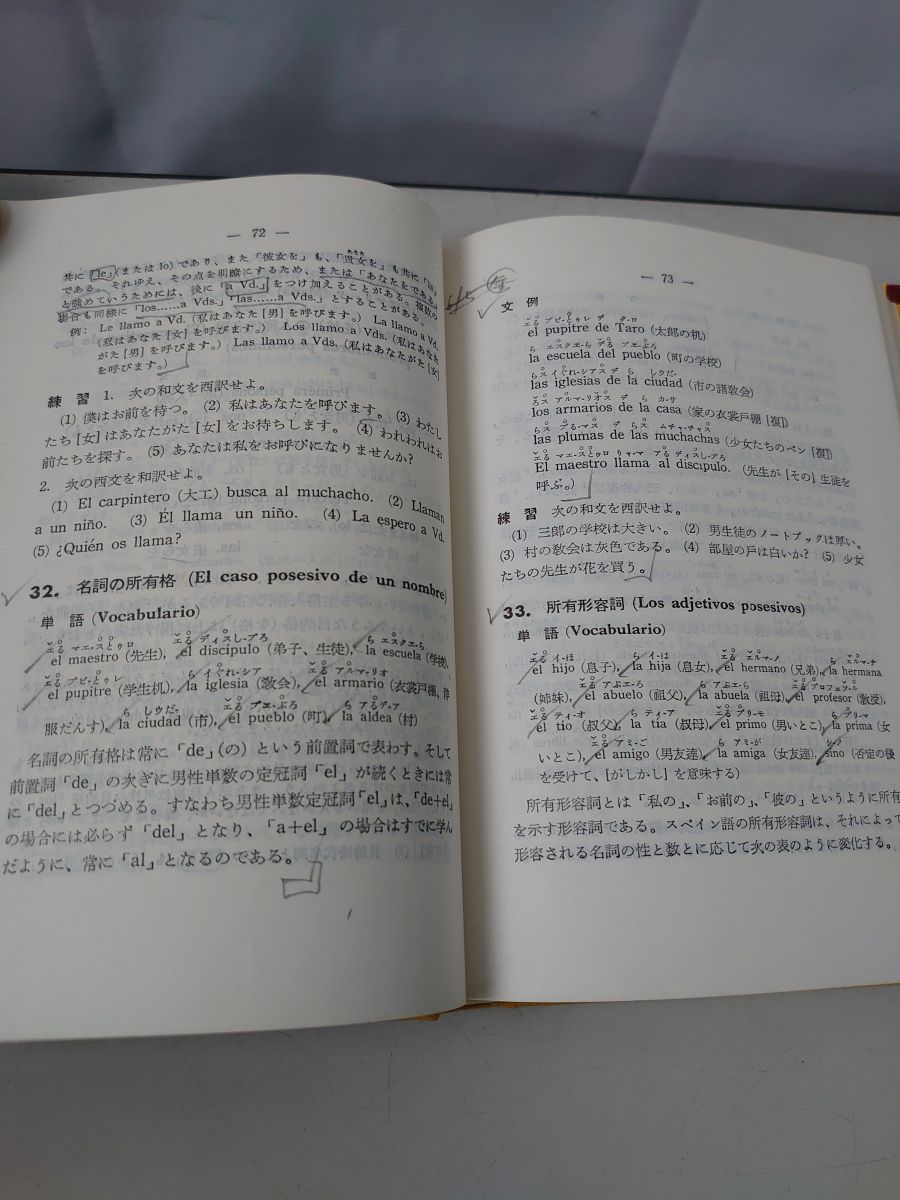 — 72 —
共に「le」(または lo) であり、また「彼女を」も、「貴女を」も共に「la」
である。それゆえ、その点を明瞭にするため、または「あなたをである」
と強めていうためには、後に「a Vd.」をつけ加えることがある。複数の
場合も同様に「los……a Vds.」「las……a Vds.」とすることがある。
例: Le llamo a Vd. (私はあなた [男] を呼びます。) La llamo a Vd.
(私はあなた [女] を呼びます。) Los llamo a Vds. (私はあなた
がた [男] を呼びます。) Las llamo a Vds. (私はあなたがた [女]
を呼びます。)
練習 1. 次の和文を西訳せよ。
(1) 僕はお前を待つ。 (2) 私はあなたを呼びます。 (3) わたし
たち [女] はあなたがた [女] をお待ちします。 (4) われわれはお
前たちを探す。 (5) あなたは私をお呼びになりませんか?
2. 次の西文を和訳せよ。
(1) El carpintero (大工) busca al muchacho. (2) Llaman
a un niño. (3) Él llama un niño. (4) La espero a Vd.
(5) ¿Quién os llama?
32. 名詞の所有格 (El caso posesivo de un nombre)
単語 (Vocabulario)
el maestro (先生), el discípulo (弟子、生徒), la escuela (学校),
el pupitre (学生机), la iglesia (敎会), el armario (衣裳戸棚、洋
服だんす), la ciudad (市), el pueblo (町), la aldea (村)
名詞の所有格は常に「de」(の) という前置詞で表わす。そして
前置詞「de」の次ぎに男性単数の定冠詞「el」が続くときには常
に「del」とつづめる。すなわち男性単数定冠詞「el」は、「de+el」
の場合には必らず「del」となり、「a+el」の場合はすでに学ん
だように、常に「al」となるのである。
— 73 —
文例
el pupitre de Taro (太郎の机)
la escuela del pueblo (町の学校)
las iglesias de la ciudad (市の諸敎会)
los armarios de la casa (家の衣裳戸棚 [複])
las plumas de las muchachas (少女たちのペン [複])
El maestro llama al discípulo. (先生が [その] 生徒を
呼ぶ。)
練習 次の和文を西訳せよ。
(1) 三郎の学校は大きい。 (2) 男生徒のノートブックは厚い。
(3) 村の敎会は灰色である。 (4) 部屋の戸は白いか? (5) 少女
たちの先生が花を買う。
33. 所有形容詞 (Los adjetivos posesivos)
単語 (Vocabulario)
el hijo (息子), la hija (息女), el hermano (兄弟), la hermana
(姉妹), el abuelo (祖父), la abuela (祖母), el profesor (敎授),
el tío (叔父), la tía (叔母), el primo (男いとこ), la prima (女
いとこ), el amigo (男友達), la amiga (女友達), sino (否定の後
を受けて、[がしかし] を意味する)
所有形容詞とは「私の」、「お前の」、「彼の」というように所有
を示す形容詞である。スペイン語の所有形容詞は、それによって
形容される名詞の性と数とに応じて次の表のように変化する。